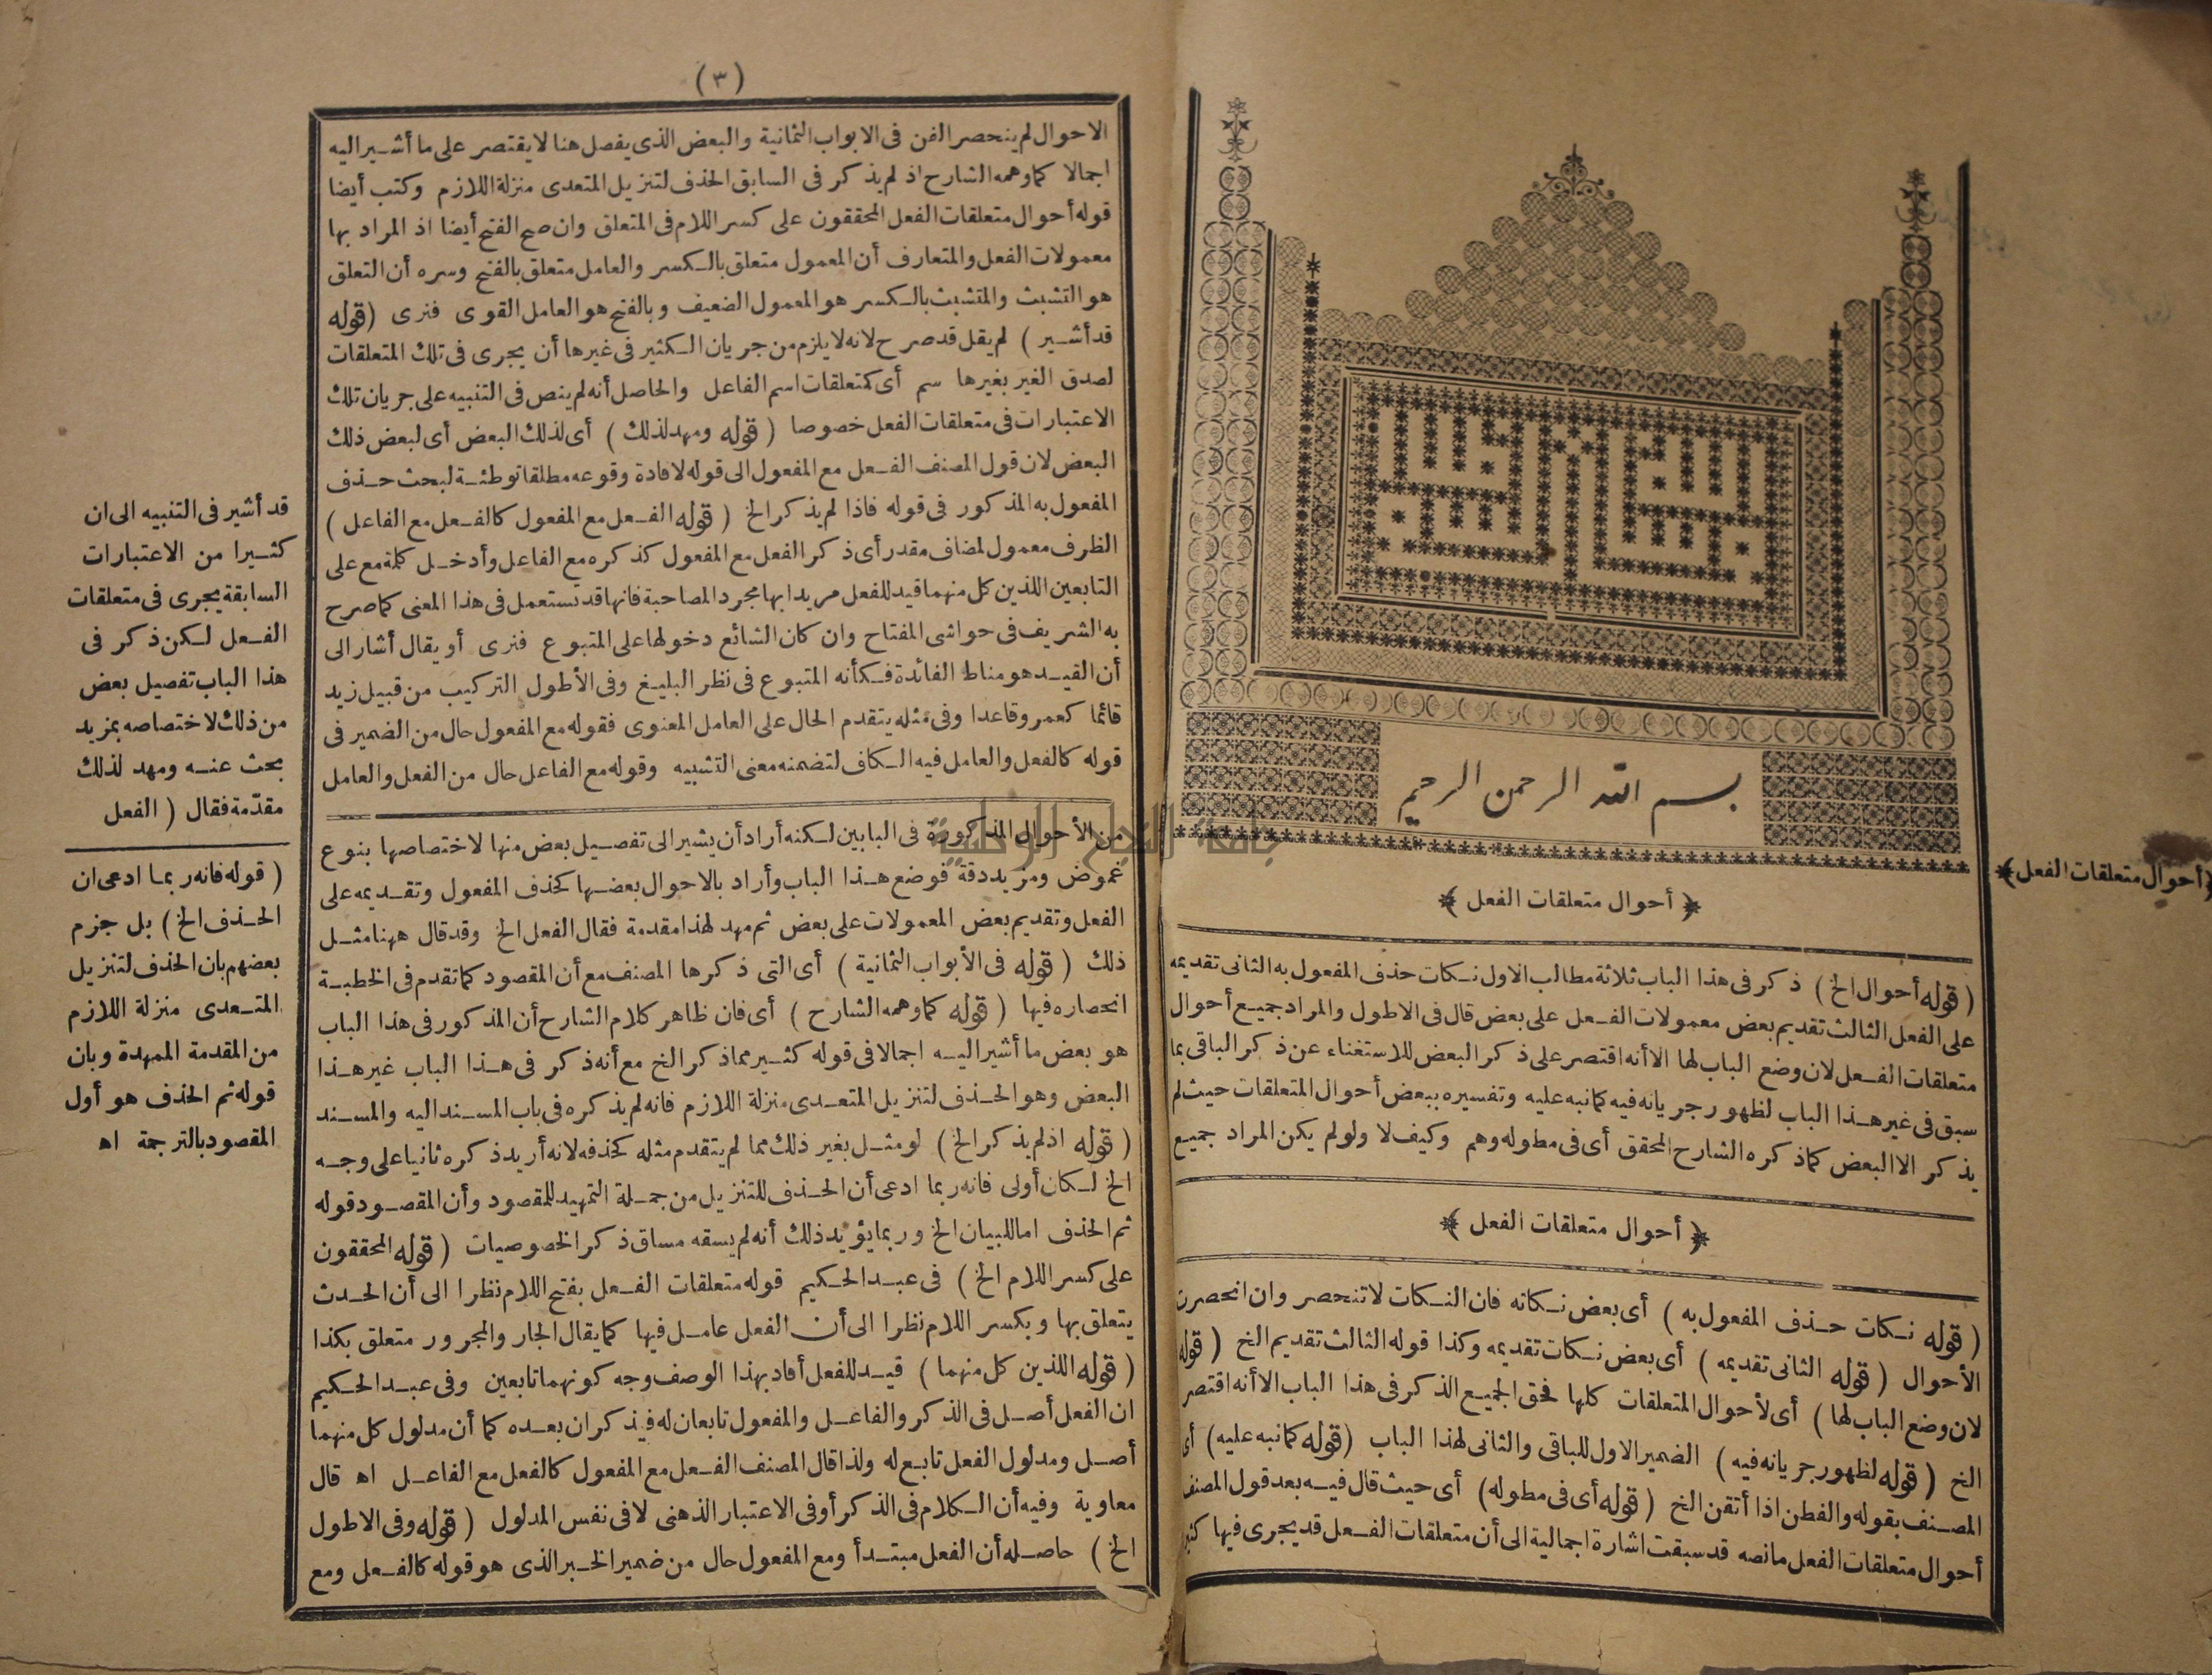 بسم الله الرحمن الرحيم
﴿ أحوال متعلقات الفعل ﴾
﴿ أحوال متعلقات الفعل ﴾
( قوله أحوال الخ ) ذكر فى هذا الباب ثلاثة مطالب الاول نكات حذف المفعول به الثانى تقديمه
على الفعل الثالث تقديم بعض معمولات الفعل على بعض قال فى الاطول والمراد جميع أحوال
متعلقات الفعل لان وضع الباب لها الا أنه اقتصر على ذكر البعض للاستغناء عن ذكر الباقى بما
سبق فى غير هذا الباب لظهور جريانه فيه كما نبه عليه وتفسيره ببعض أحوال المتعلقات حيث لم
يذكر الا البعض كما ذكره الشارح المحقق أى فى مطوله وهم وكيف لا ولو لم يكن المراد جميع
﴿ أحوال متعلقات الفعل ﴾
( قوله نكات حذف المفعول به ) أى بعض نكاته فان النكات لا تنحصر وان انحصرت
الأحوال ( قوله الثانى تقديمه ) أى بعض نكات تقديمه وكذا قوله الثالث تقديم الخ ( قوله
لان وضع الباب لها ) أى لأحوال المتعلقات كلها فحق الجميع الذكر فى هذا الباب الا أنه اقتصر
الخ ( قوله لظهور جريانه فيه ) الضمير الاول للباقى والثانى لهذا الباب ( قوله كما نبه عليه ) أى
المصنف بقوله والفطن اذا أتقن الخ ( قوله أى فى مطوله ) أى حيث قال فيه بعد قول المصنف
أحوال متعلقات الفعل ما نصه قد سبقت اشارة اجمالية الى أن متعلقات الفعل قد يجرى فيها كثير
( ٣ )
الاحوال لم ينحصر الفن فى الابواب الثمانية والبعض الذى يفصل هنا لا يقتصر على ما أشير اليه
اجمالا كما وهمه الشارح اذ لم يذكر فى السابق الحذف لتنزيل المتعدى منزلة اللازم وكتب أيضا
قوله أحوال متعلقات الفعل المحققون على كسر اللام فى المتعلق وان صح الفتح أيضا اذ المراد بها
معمولات الفعل والمتعارف أن المعمول متعلق بالكسر والعامل متعلق بالفتح وسره أن التعلق
هو التشبث والمتشبث بالكسر هو المعمول الضعيف وبالفتح هو العامل القوى فنرى ( قوله
قد أشير ) لم يقل قد صرح لانه لا يلزم من جريان الكثير فى غيرها أن يجرى فى تلك المتعلقات
لصدق الغير بغيرها سم أى كمتعلقات اسم الفاعل والحاصل أنه لم ينص فى التنبيه على جريان تلك
الاعتبارات فى متعلقات الفعل خصوصا ( قوله ومهد لذلك ) أى لذلك البعض أى لبعض ذلك
البعض لان قول المصنف الفعل مع المفعول الى قوله لا فادة وقوعه مطلقا توطئة لبحث حذف
المفعول به المذكور فى قوله فاذا لم يذكر الخ ( قوله الفعل مع المفعول كالفعل مع الفاعل )
الظرف معمول لمضاف مقدر أى ذكر الفعل مع المفعول كذكره مع الفاعل وأدخل كلمة مع على
التابعين اللذين كل منهما قيد للفعل مريدا بها مجرد المصاحبة فانها قد تستعمل فى هذا المعنى كما صرح
به الشريف فى حواشى المفتاح وان كان الشائع دخولها على المتبوع فنرى أو يقال أشار الى
أن القيد هو مناط الفائدة فكأنه المتبوع فى نظر البليغ وفى الأطول التركيب من قبيل زيد
قائما كعمرو قاعدا وفى مثله يتقدم الحال على العامل المعنوى فقوله مع المفعول حال من الضمير فى
قوله كالفعل والعامل فيه الكاف لتضمنه معنى التشبيه وقوله مع الفاعل حال من الفعل والعامل
من الأحوال المذكورة فى البابين لكنه أراد أن يشير الى تفصيل بعض منها لاختصاصها بنوع
غموض ومزيد دقة فوضع هذا الباب وأراد بالاحوال بعضها كحذف المفعول وتقديمه على
الفعل وتقديم بعض المعمولات على بعض ثم مهد لهذا مقدمة فقال الفعل الخ وقد قال ههنا مثل
ذلك ( قوله فى الأبواب الثمانية ) أى التى ذكرها المصنف مع أن المقصود كما تقدم فى الخطبة
انحصاره فيها ( قوله كما وهمه الشارح ) أى فان ظاهر كلام الشارح أن المذكور فى هذا الباب
هو بعض ما أشير اليه اجمالا فى قوله كثير مما ذكر الخ مع أنه ذكر فى هذا الباب غير هذا
البعض وهو الحذف لتنزيل المتعدى منزلة اللازم فانه لم يذكره فى باب المسند اليه والمسند
( قوله اذ لم يذكر الخ ) لو مثل بغير ذلك مما لم يتقدم مثله كحذفه لانه أريد ذكره ثانيا على وجه
الخ لكان أولى فانه ربما ادعى أن الحذف للتنزيل من جملة التمهيد للمقصود وأن المقصود قوله
ثم الحذف اما للبيان الخ وربما يؤيد ذلك أنه لم يسقه مساق ذكر الخصوصيات ( قوله المحققون
على كسر اللام الخ ) فى عبد الحكيم قوله متعلقات الفعل بفتح اللام نظرا الى أن الحدث
يتعلق بها وبكسر اللام نظرا الى أن الفعل عامل فيها كما يقال الجار والمجرور متعلق بكذا
( قوله اللذين كل منهما ) قيد للفعل أفاد بهذا الوصف وجه كونهما تابعين وفى عبد الحكيم
ان الفعل أصل فى الذكر والفاعل والمفعول تابعان له فيذكران بعده كما أن مدلول كل منهما
أصل ومدلول الفعل تابع له ولذا قال المصنف الفعل مع المفعول كالفعل مع الفاعل اه قال
معاوية وفيه أن الكلام فى الذكر أو فى الاعتبار الذهنى لا فى نفس المدلول ( قوله وفى الاطول
الخ ) حاصله أن الفعل مبتدأ ومع المفعول حال من ضمير الخبر الذى هو قوله كالفعل ومع
قد أشير فى التنبيه الى ان
كثيرا من الاعتبارات
السابقة يجرى فى متعلقات
الفعل لكن ذكر فى
هذا الباب تفصيل بعض
من ذلك لاختصاصه بمزيد
بحث عنه ومهد لذلك
مقدّمة فقال ( الفعل
( قوله فانه ربما ادعى ان
الحذف الخ ) بل جزم
بعضهم بان الحذف لتنزيل
المتعدى منزلة اللازم
من المقدمة الممهدة وبان
قوله ثم الحذف هو أول
المقصود بالترجمة اه
جامعة النجاح الوطنية